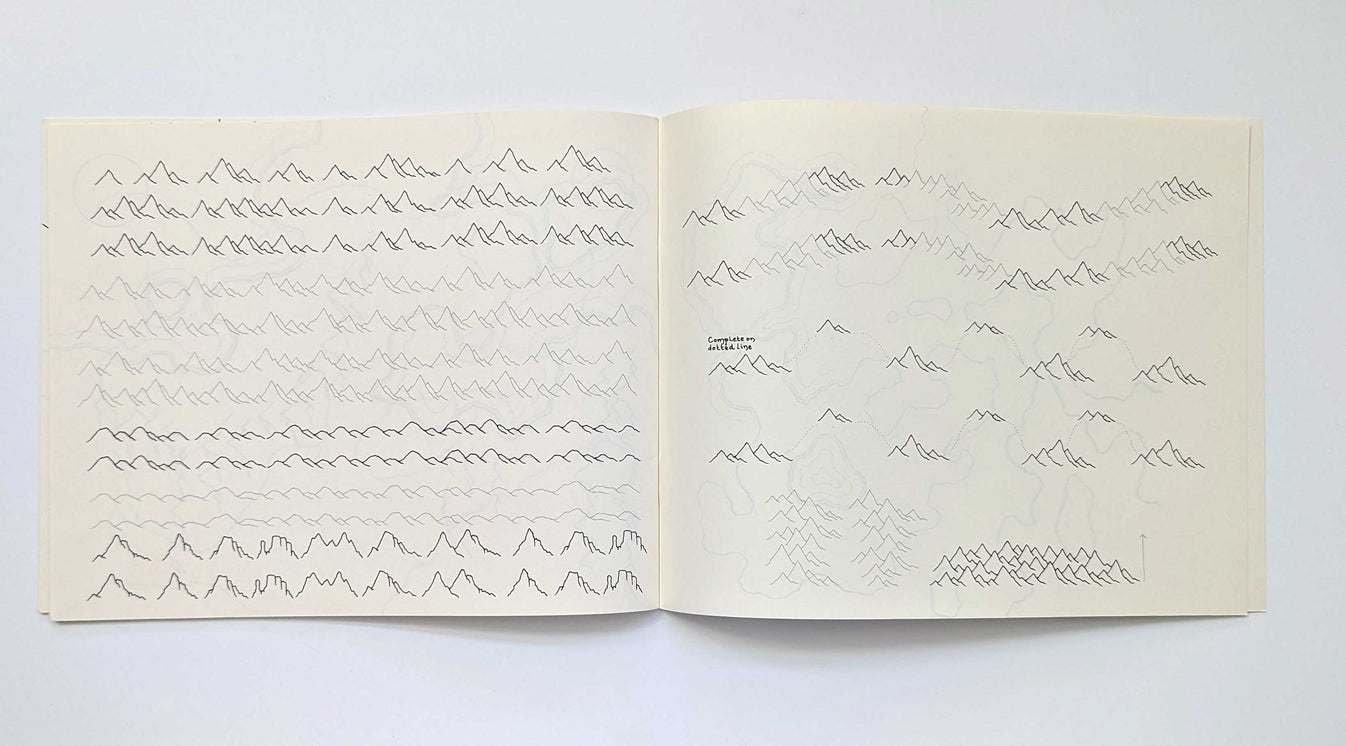 Complete on
dotted line